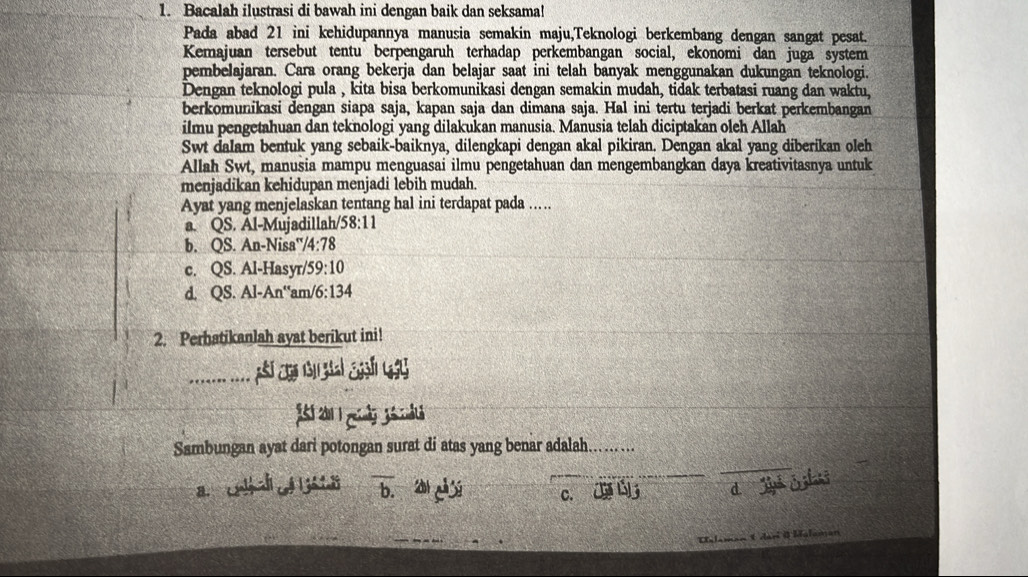 1. Bacalah ilustrasi di bawah ini dengan baik dan seksama!
Pada abad 21 ini kehidupannya manusia semakin maju,Teknologi berkembang dengan sangat pesat.
Kemajuan tersebut tentu berpengaruh terhadap perkembangan social, ekonomi dan juga system
pembelajaran. Cara orang bekerja dan belajar saat ini telah banyak menggunakan dukungan teknologi.
Dengan teknologi pula , kita bisa berkomunikasi dengan semakin mudah, tidak terbatasi ruang dan waktu,
berkomunikasi dengan siapa saja, kapan saja dan dimana saja. Hal ini tertu terjadi berkat perkembangan
ilmu pengetahuan dan teknologi yang dilakukan manusia. Manusia telah diciptakan oleh Allah
Swt dalam bentuk yang sebaik-baiknya, dilengkapi dengan akal pikiran. Dengan akal yang diberikan oleh
Allah Swt, manusia mampu menguasai ilmu pengetahuan dan mengembangkan daya kreativitasnya untuk
menjadikan kehidupan menjadi lebih mudah.
Ayat yang menjelaskan tentang hal ini terdapat pada .....
a. QS. Al-Mujadillah/58:11
b. QS. An-Nisa‟/4:78
c. QS. Al-Hasyr/59:10
d. QS. Al-An‟am/6:134
2. Perhatikanlah ayat berikut ini!
يٰٓاَيُّهَا الَّذِيْنَ اٰمَنُوْٓا اِذَا قِيْلَ لَكُمْ .... .......
فَافْسَحُوْا يَفْسَحِ اللّٰهُ لَكُمْ
Sambungan ayat dari potongan surat di atas yang benar adalah.........
a. تَفَسَّحُوْا فِى الْمَجٰلِسِ b. يَرْفَعِ اللّٰهُ c. وَاِذَا قِيْلَ d. تَعْمَلُوْنَ خَبِيْرٌ
Halaman 1 dari 8 Halaman